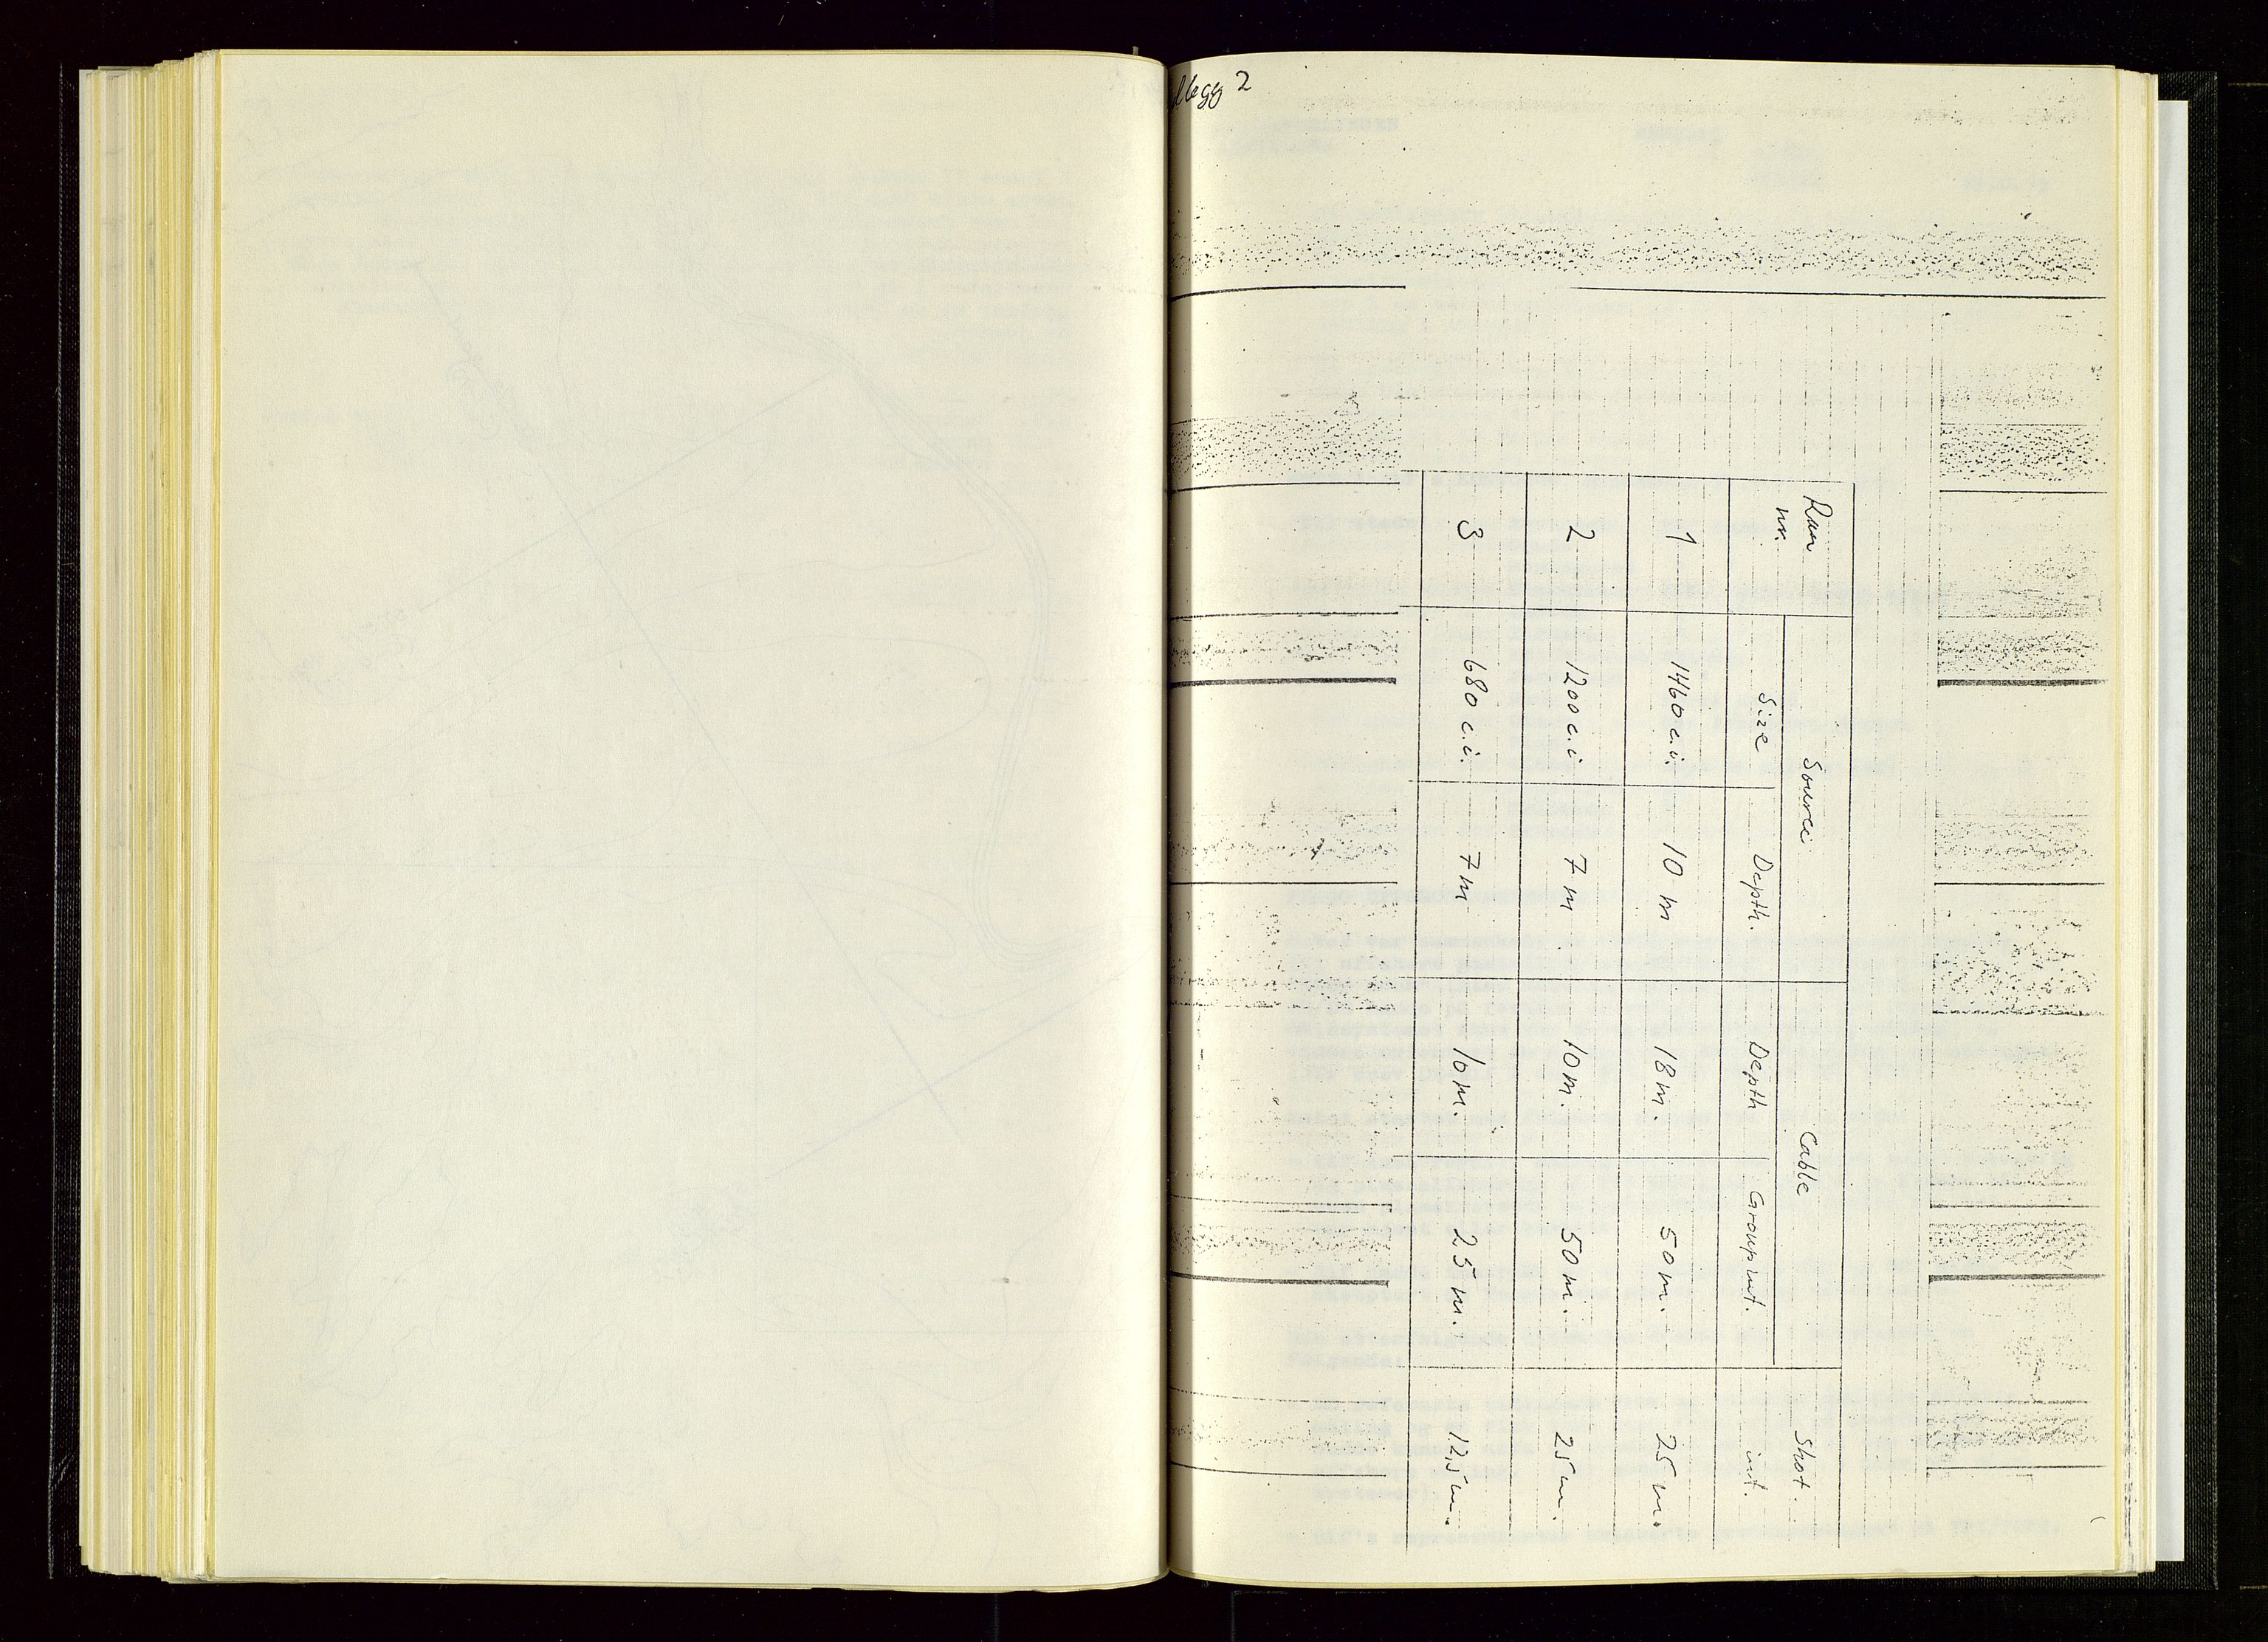 2
Run Source Cable Shot.
nr. Size Depth. Depth Group int. int.
1 1460 c.i. 10 m 18 m. 50 m. 25 m.
2 1200 c.i 7 m 10 m. 50 m. 25 m.
3 680 c.i. 7 m 10 m. 25 m. 12,5 m.